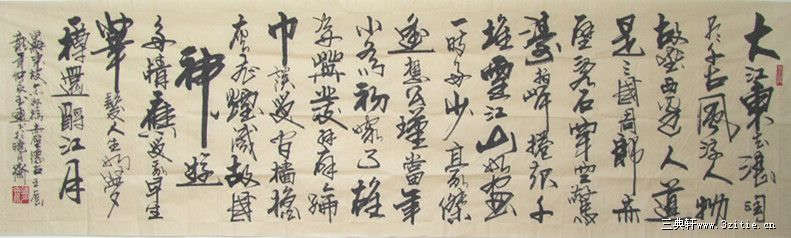 大江東去浪淘
盡千古風流人物
故壘西邊人道
是三國周郎赤
壁亂石穿空驚
濤拍岸捲起千
堆雪江山如畫
一時多少豪傑
遙想公瑾當年
小喬初嫁了雄
姿英發羽扇綸
巾談笑間檣櫓
灰飛煙滅故國
神遊
多情應笑我早生
華髮人生如夢
樽還酹江月
三典轩www.3ztie.cn